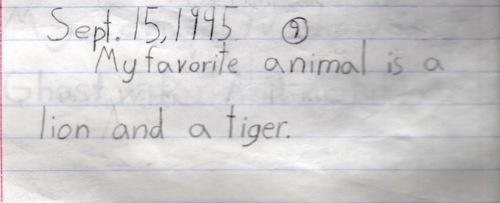 Sept. 15, 1995 9
My favorite animal is a
lion and a tiger.